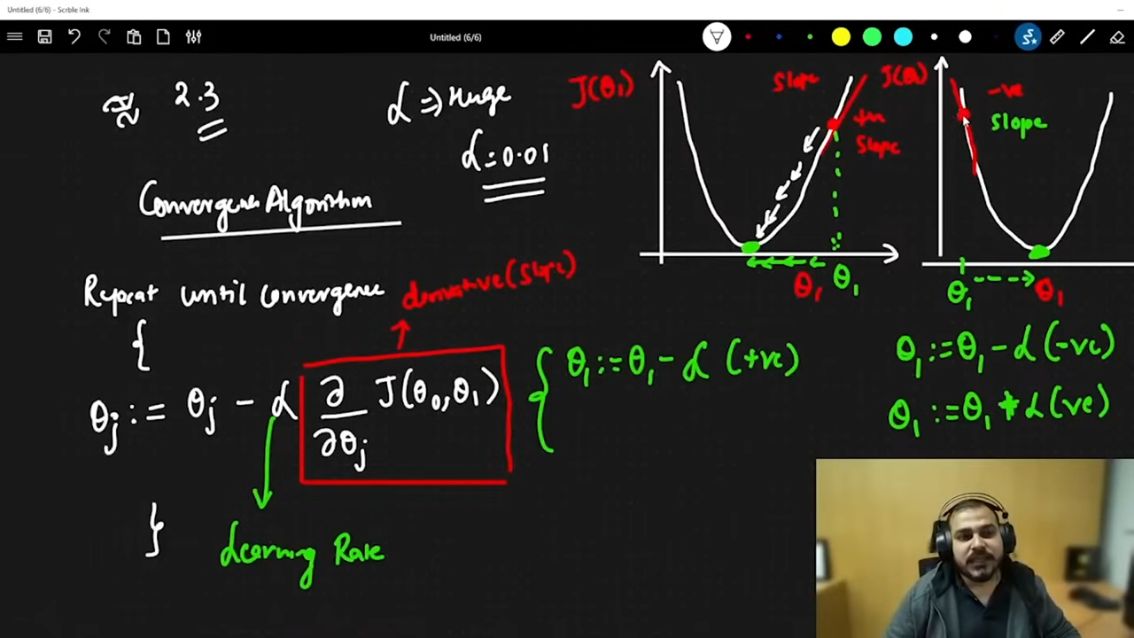 Untitled (6/6) - Scrble Ink
Untitled (6/6)
≈ 2.3
α ⇒ Huge
α = 0.01
Convergence Algorithm
Repeat until convergence
{
θj := θj - α ∂/∂θj J(θ0, θ1)
}
derivative (slope)
Learning Rate
{ θ1 := θ1 - α (+ve)
J(θ1)
slope
+ve
slope
θ1 θ1
J(θ1)
-ve
slope
θ1 θ1
θ1 := θ1 - α (-ve)
θ1 := θ1 + α (ve)